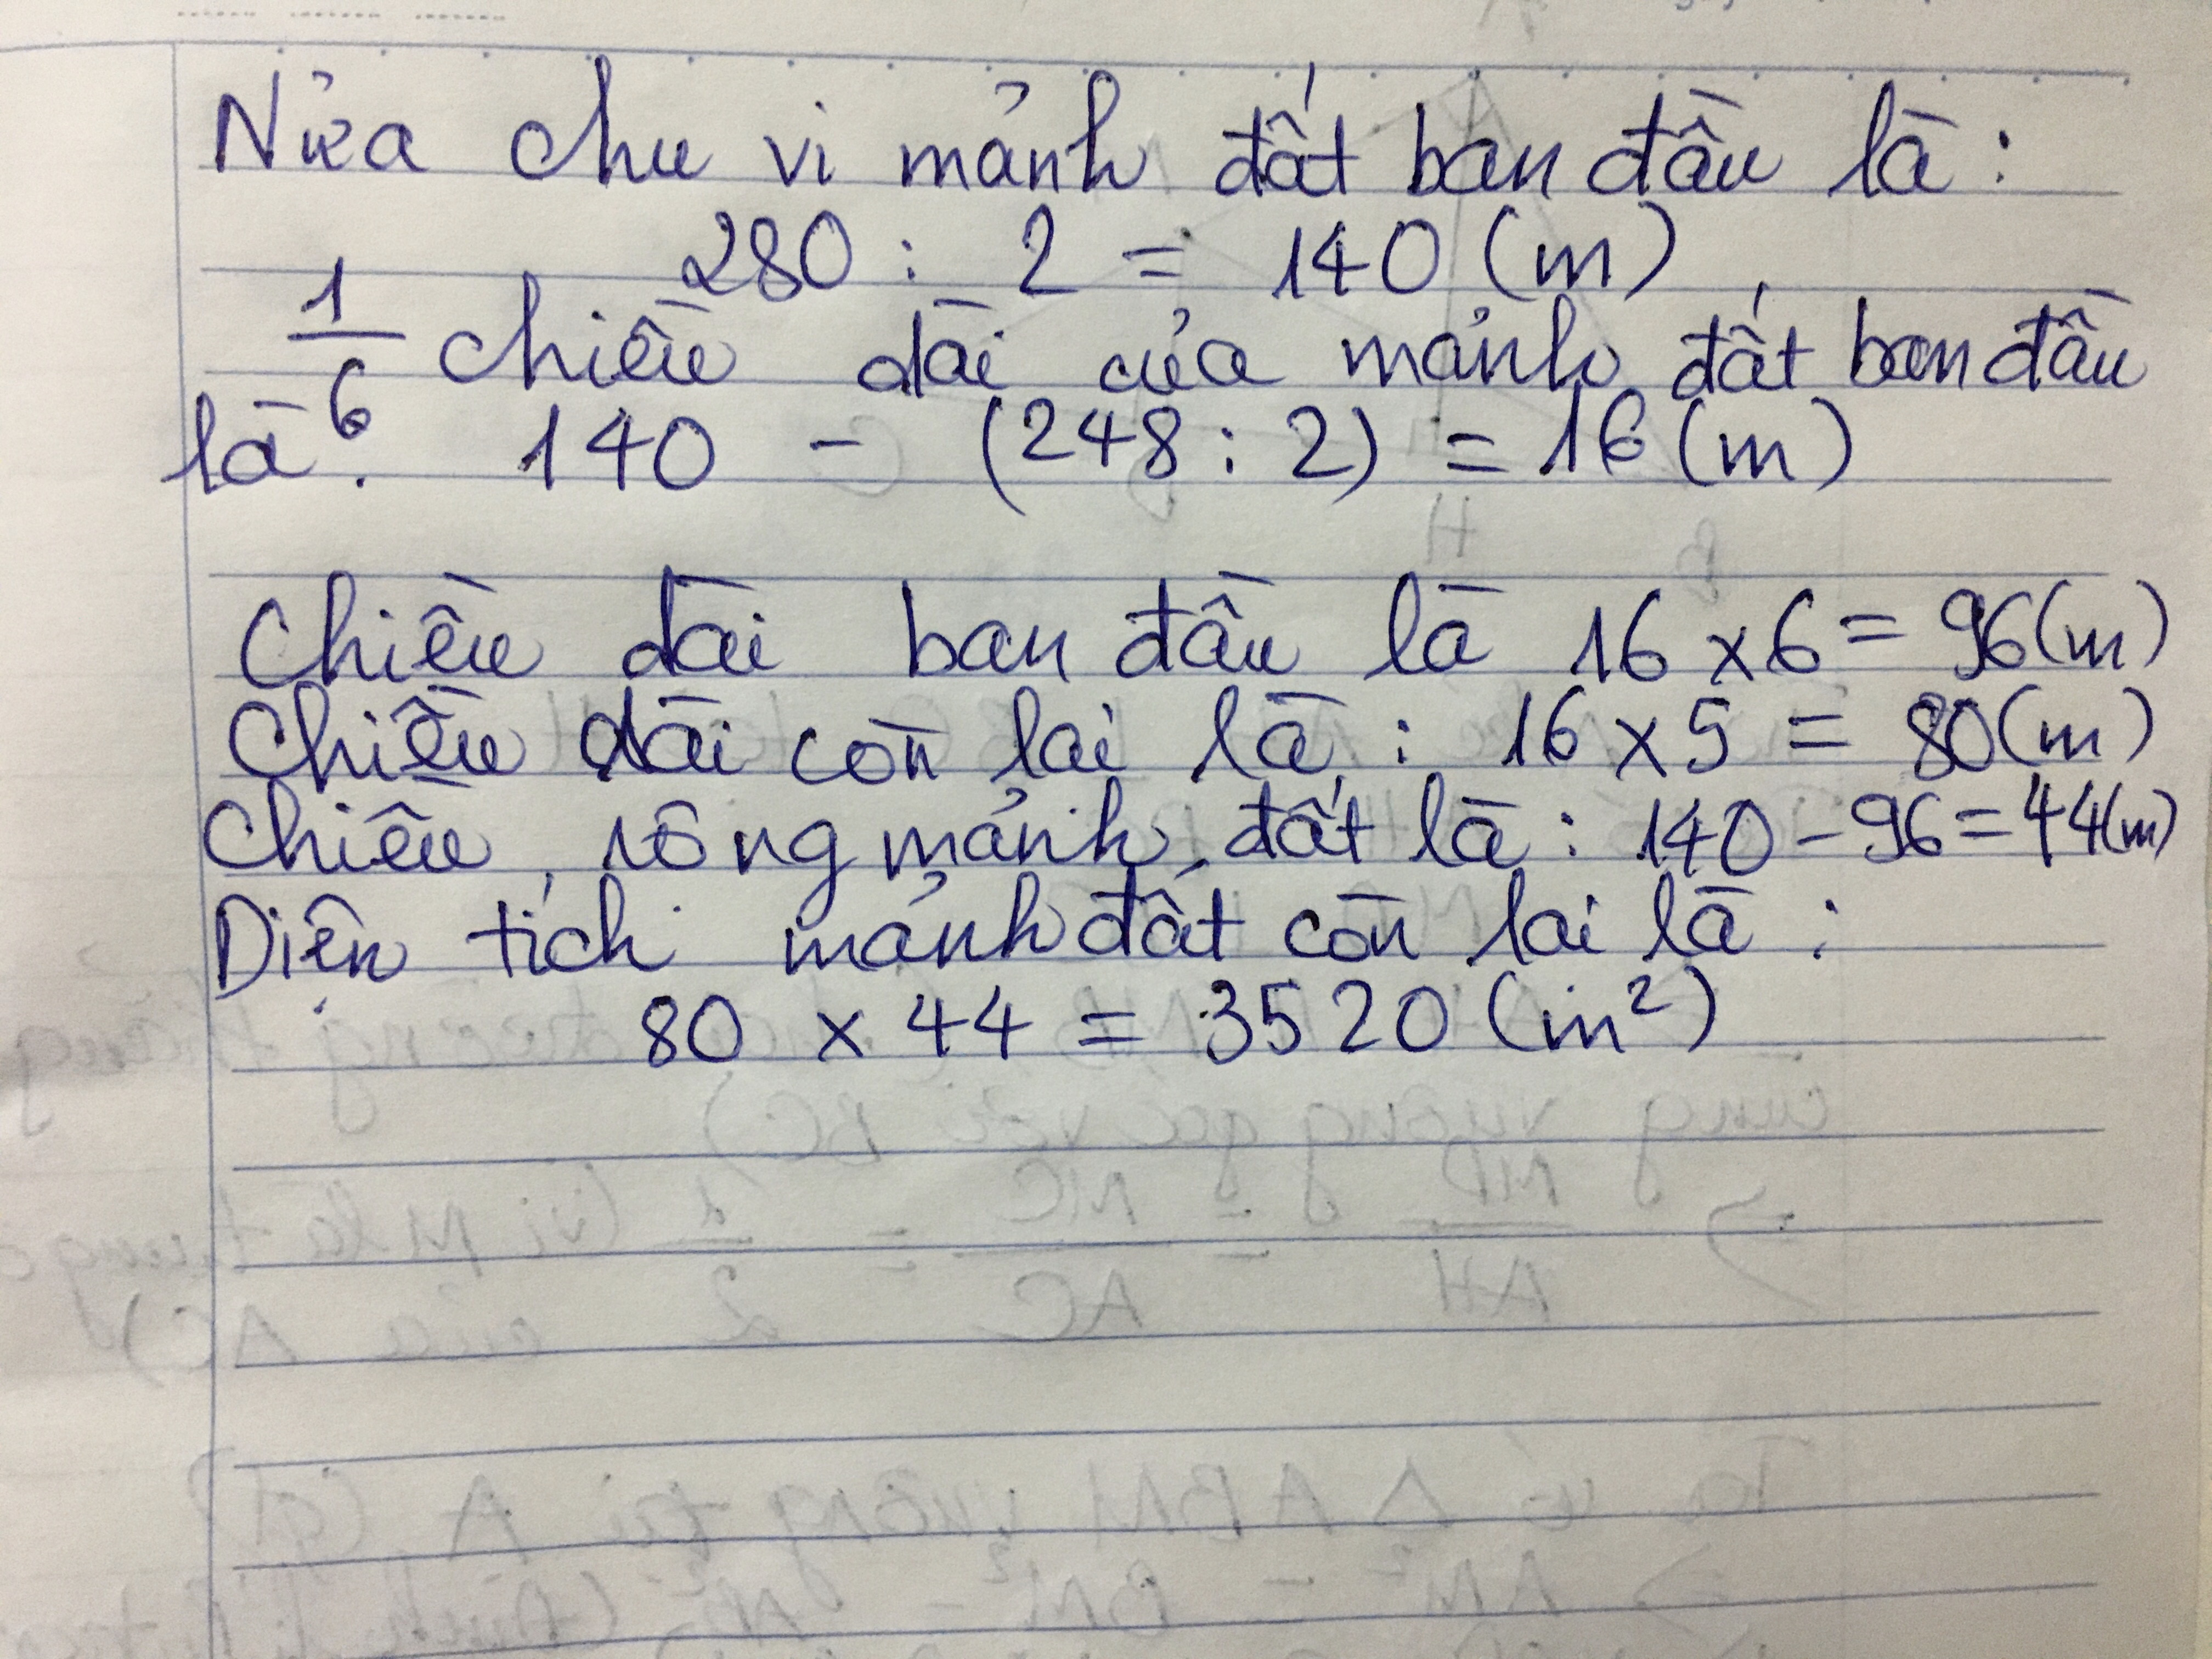 Nửa chu vi mảnh đất ban đầu là :
280 : 2 = 140 (m)
1/6 chiều dài của mảnh đất ban đầu
là : 140 - (248 : 2) = 16 (m)
Chiều dài ban đầu là 16 x 6 = 96 (m)
Chiều dài còn lại là : 16 x 5 = 80 (m)
Chiều rộng mảnh đất là : 140 - 96 = 44 (m)
Diện tích mảnh đất còn lại là :
80 x 44 = 3520 (m²)